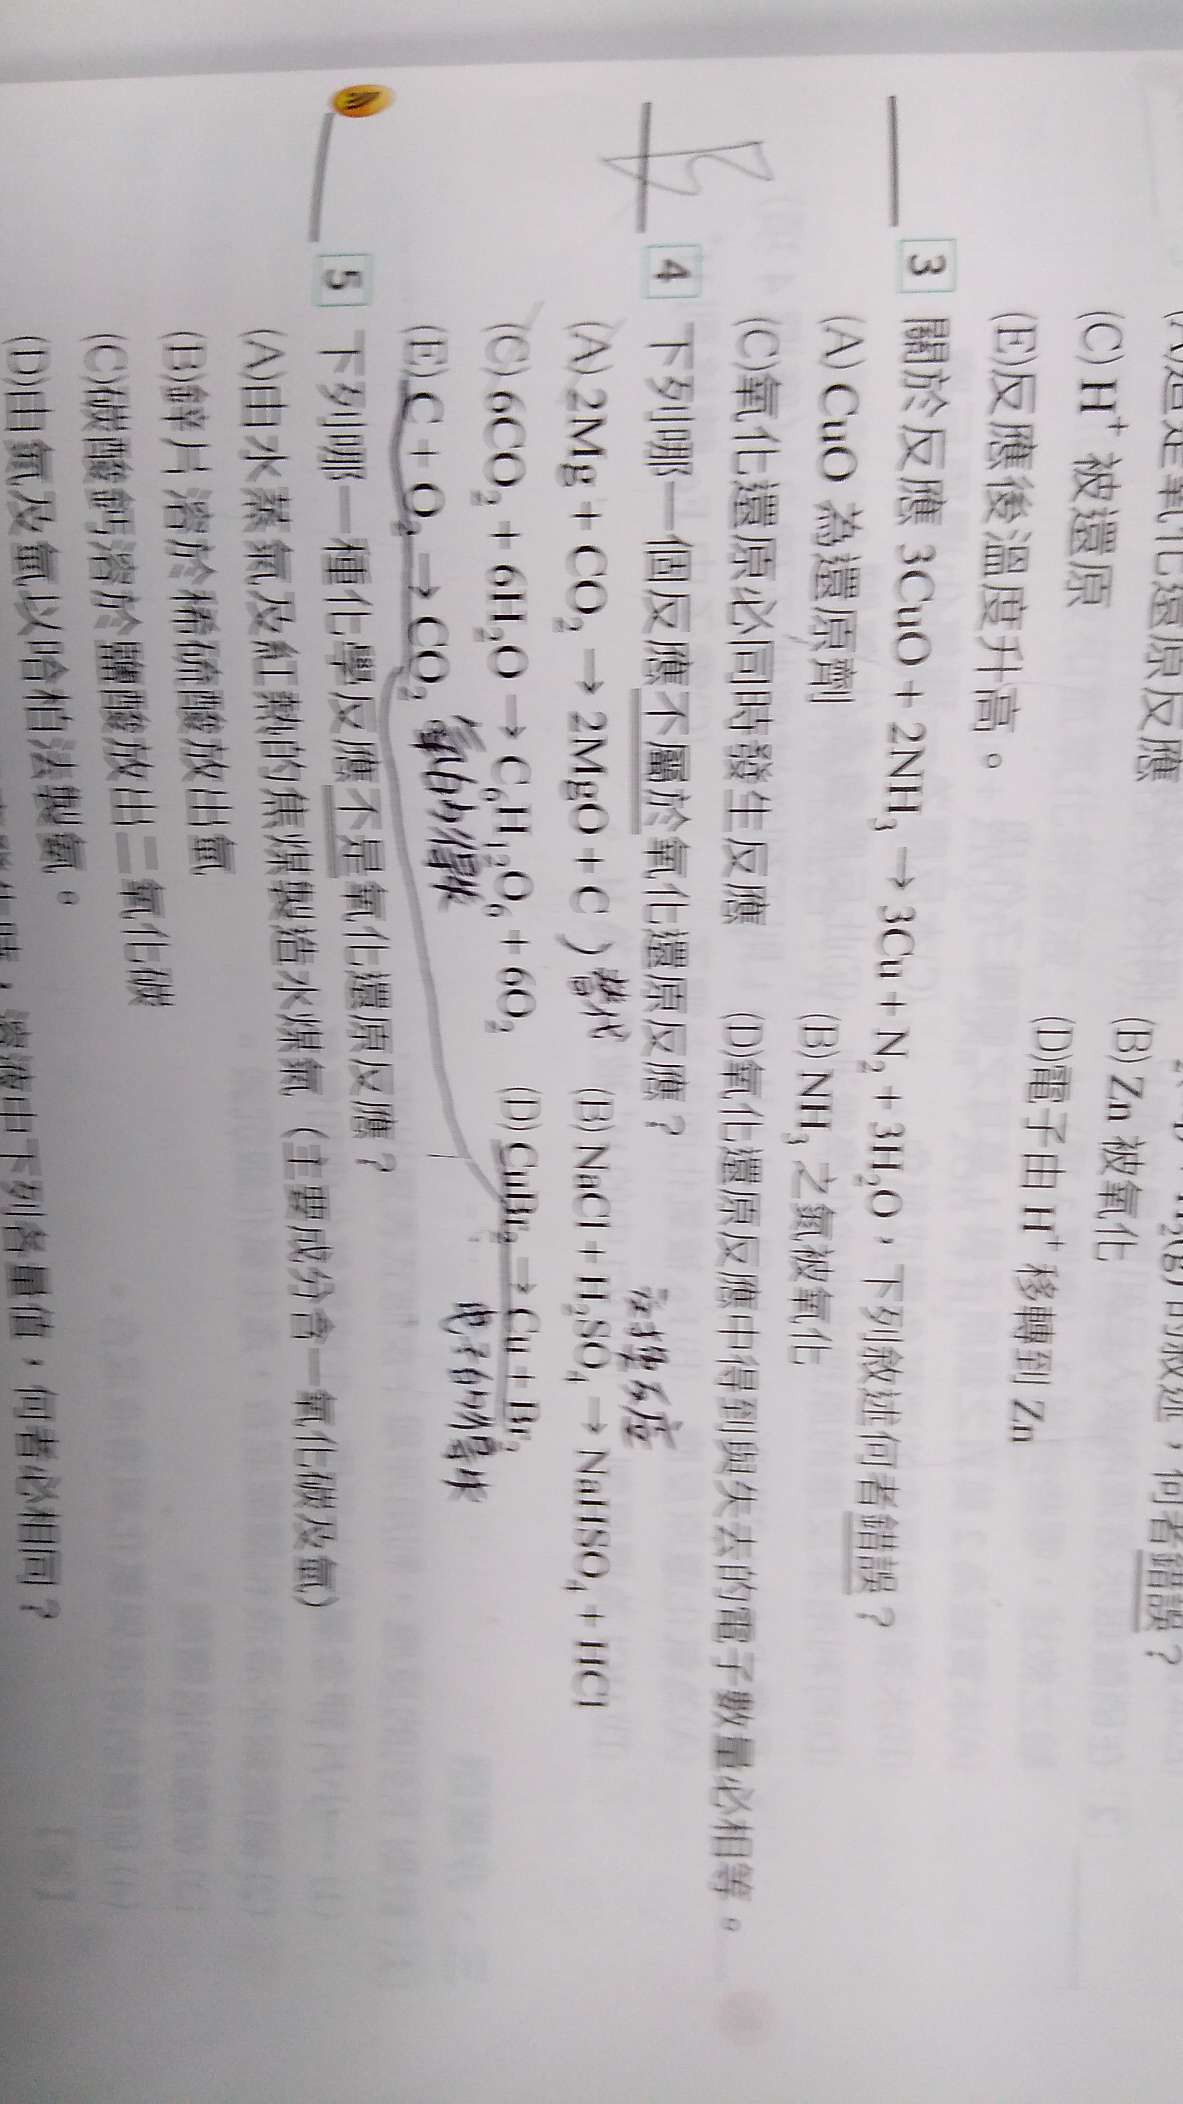 (A)這是氧化還原反應
(B) Zn 被氧化
(C) H⁺ 被還原
(D)電子由 H⁺ 移轉到 Zn
(E)反應後溫度升高。
3 關於反應 3CuO + 2NH₃ → 3Cu + N₂ + 3H₂O，下列敘述何者錯誤？
(A) CuO 為還原劑
(B) NH₃ 之氮被氧化
(C)氧化還原必同時發生反應
(D)氧化還原反應中得到與失去的電子數量必相等。
4 下列哪一個反應不屬於氧化還原反應？
(A) 2Mg + CO₂ → 2MgO + C
替代
(B) NaCl + H₂SO₄ → NaHSO₄ + HCl
(C) 6CO₂ + 6H₂O → C₆H₁₂O₆ + 6O₂
(D) CuBr₂ → Cu + Br₂
電子的得失
(E) C + O₂ → CO₂
氧的得失
5 下列哪一種化學反應不是氧化還原反應？
(A)由水蒸氣及紅熱的焦煤製造水煤氣（主要成分含一氧化碳及氫）
(B)鋅片溶於稀硫酸放出氫
(C)碳酸鈣溶於鹽酸放出二氧化碳
(D)由氮及氫以哈柏法製氨。
溶液中下列各量值，何者必相同？